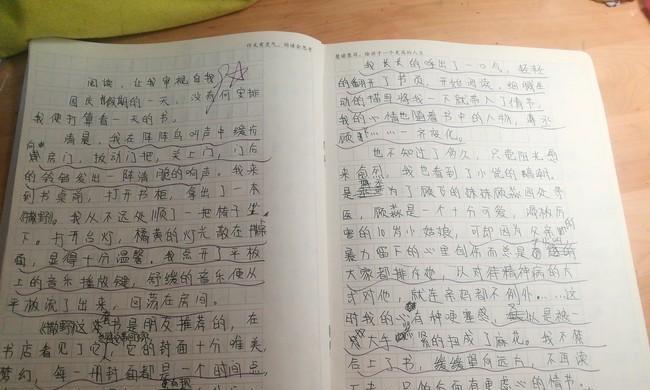 作文有灵气，阅读会思考
阅读，让我审视自我
因员暑假期的一天，没有何安排
我便打算看一天的书。
清晨，我在阵阵鸟叫声中缓缓
向房门，扳动门把，关上门，门后
的铃铛发出一阵清脆的响声。我来
到书桌前，打开书柜，拿出了一本
《撒野》。我从不远处顺了一把椅子坐
下。打开台灯，橘黄的灯光散在
面，显得十分温馨。我点开了平板
上的音乐播放键，舒缓的音乐便从
平板流了出来，回荡在房间。
《撒野》这本书是朋友推荐的，在
书店看见了它，它的封面十分唯美，
梦幻，每一册封面都是一个时间点，
我长长的呼出了一口气，轻轻
的翻开了书页，开始阅读。细腻生
动的描写将我一下就带入了情节，
我的心情也随着书中的人物，蒋丞
顾飞……一齐变化。
也不知过了多久，只觉阳光愈
来愈烈，我也看到了小说的精彩。
是为了顾飞的妹妹顾淼四处寻
医，顾淼是一个十分可爱，
的10岁小姑娘，可却因为父亲
暴力留下的心里创伤而总是
大家都排斥她，以对待精神病的方
式对他，就连亲妈都不例外……这
时我的心百种哽塞感，似是被一
大手紧的扭成了麻花。我不禁
合上了书，缓缓望向远方，不再读